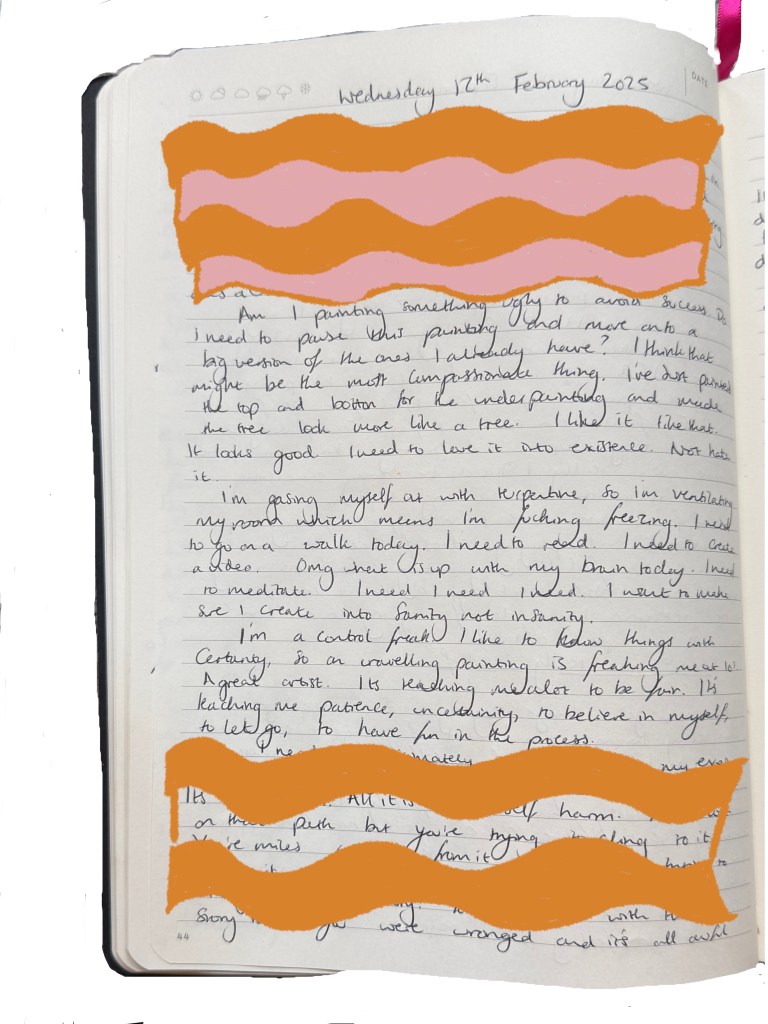 Wednesday 12th February 2025
DATE
Am I painting something ugly to avoid success. Do
I need to pause this painting and move onto a
big version of the ones I already have? I think that
might be the most compassionate thing. I've just painted
the top and bottom for the underpainting and made
the tree look more like a tree. I like it like that.
It looks good. I need to love it into existence. Not hate
it.
I'm gasing myself out with turpentine, so I'm ventilating
my room which means I'm fucking freezing. I need
to go on a walk today. I need to read. I need to create
a video. Omg what is up with my brain today. I need
to meditate. I need I need I need. I want to make
sure I create into sanity not insanity.
I'm a control freak I like to know things with
Certainty, so an unravelling painting is freaking me out lol
A great artist. Its teaching me alot to be fair. It's
teaching me patience, uncertainity, to believe in myself,
to let go, to have fun in the process.
I need my
Its All it is self harm.
on that path but you're trying to cling to it
You're miles from it
it to
Story you were wronged and it's all awful
44